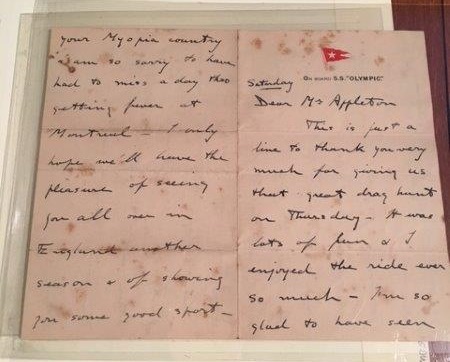 ON BOARD S.S. "OLYMPIC"
Saturday
Dear Mr Appleton
This is just a
line to thank you very
much for giving us
that great drag hunt
on Thursday - It was
lots of fun & I
enjoyed the ride ever
so much - I'm so
glad to have seen
your Myopia country
& am so sorry to have
had to miss a day thro
getting fever at
Montreal - I only
hope we'll have the
pleasure of seeing
you all over in
England another
season & of showing
you some good sport -